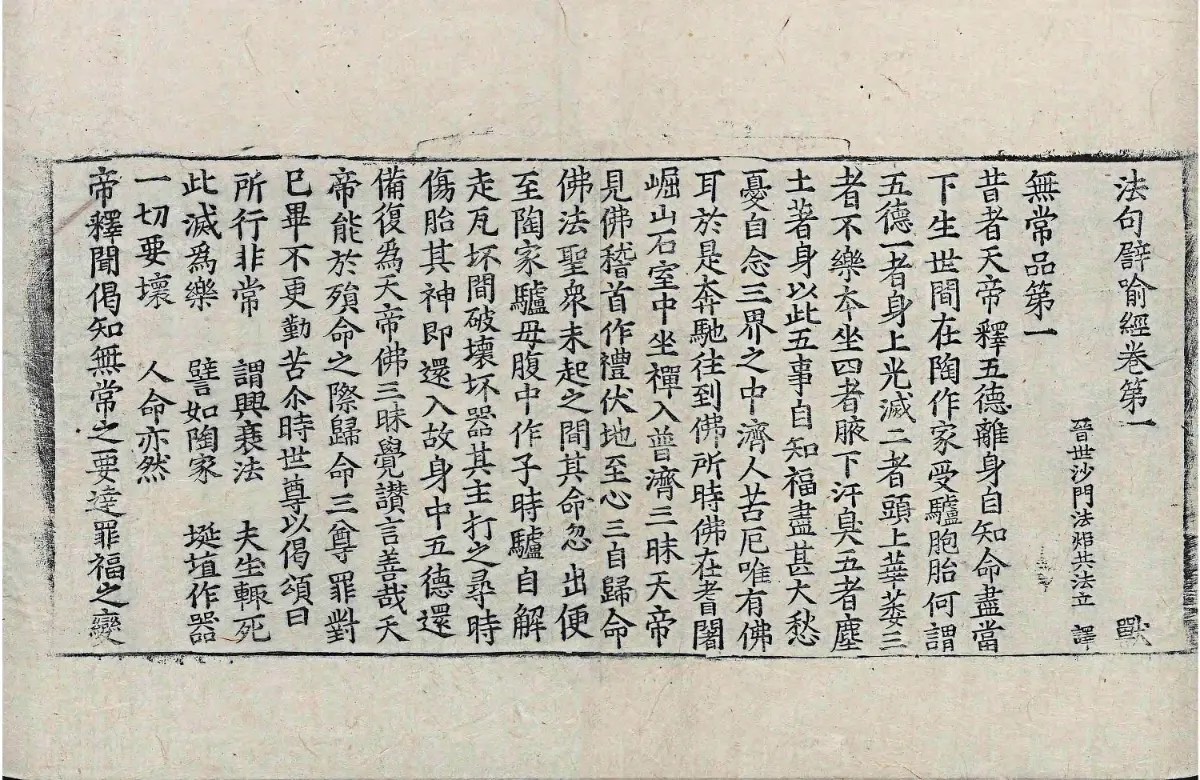 法句譬喻經卷第一 獸
晉世沙門法炬共法立 譯
無常品第一
昔者天帝釋五德離身自知命盡當
下生世間在陶作家受驢胞胎何謂
五德一者身上光滅二者頭上華萎三
者不樂夲坐四者腋下汗臭五者塵
土著身以此五事自知福盡甚大愁
憂自念三界之中濟人苦厄唯有佛
耳於是奔馳往到佛所時佛在耆闍
崛山石室中坐禪入普濟三昧天帝
見佛稽首作禮伏地至心三自歸命
佛法聖衆未起之間其命忽出便
至陶家驢母腹中作子時驢自解
走瓦坏間破壞坏器其主打之尋時
傷胎其神即還入故身中五德還
備復為天帝佛三昧覺讃言善哉天
帝能於殞命之際歸命三尊罪對
已畢不更勤苦尒時世尊以偈頌曰
所行非常 謂興衰法 夫生輒死
此滅為樂 譬如陶家 埏埴作器
一切要壞 人命亦然
帝釋聞偈知無常之要達罪福之變